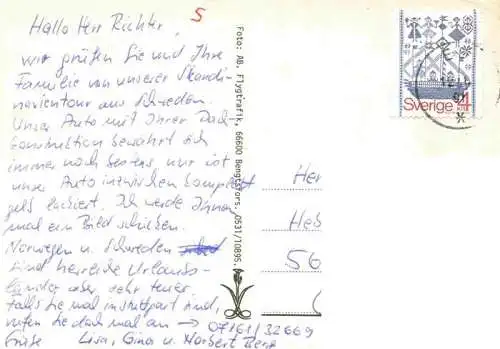 Hallo Herr Richter,
S
wir grüßen Sie und Ihre
Familie von unserer Skandi-
navientour aus Schweden.
Unser Auto mit Ihrer Dach
konstruktion bewährt sich
immer noch bestens nur ist
unser Auto inzwischen komplett
gelb lackiert. Ich werde Ihnen
mal ein Bild schicken.
Norwegen u. Schweden
sind herrliche Urlaubs-
länder aber sehr teuer.
Falls Sie mal in Stuttgart sind,
rufen Sie doch mal an → 07161/32669
Grüße Lisa, Gina u. Norbert
Foto: AB. Flygtrafik, 66600 Bengtsfors. 0531/10895.
Sverige 4
Her
Heb
56